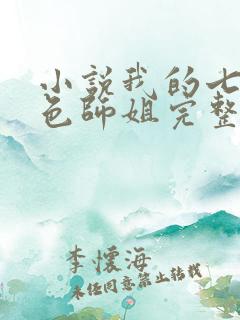 小說我的七
色師姐完整
李懷海
未经同意禁止转载